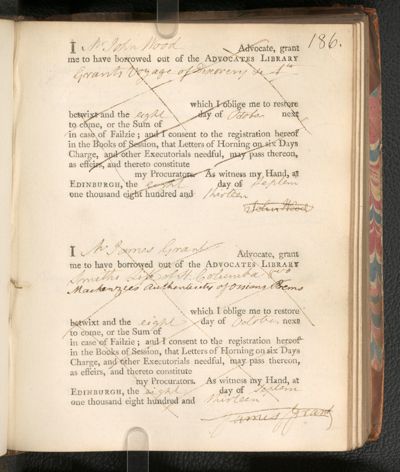 186.
I Mr John Wood Advocate, grant
me to have borrowed out of the ADVOCATES LIBRARY
Grants Voyage of Discovery &c 4to
which I oblige me to restore
betwixt and the eight day of October next
to come, or the Sum of
in case of Failzie; and I consent to the registration hereof
in the Books of Session, that Letters of Horning on six Days
Charge, and other Executorials needful, may pass thereon,
as effeirs, and thereto constitute
my Procurators. As witness my Hand, at
EDINBURGH, the eight day of Septem
one thousand eight hundred and thirteen
John Wood
I Mr James Grant Advocate, grant
me to have borrowed out of the ADVOCATES LIBRARY
Smiths Life of St. Columba 8vo
Mackenzies authenticity of Ossians Poems
which I oblige me to restore
betwixt and the eight day of October next
to come, or the Sum of
in case of Failzie; and I consent to the registration hereof
in the Books of Session, that Letters of Horning on six Days
Charge, and other Executorials needful, may pass thereon,
as effeirs, and thereto constitute
my Procurators. As witness my Hand, at
EDINBURGH, the eight day of Septem
one thousand eight hundred and thirteen
James Grant